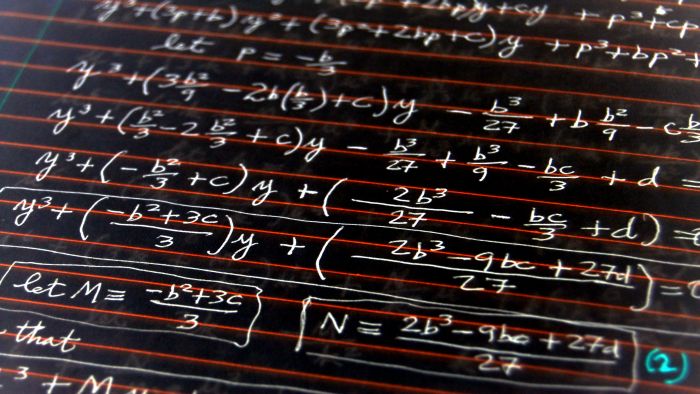 y³+(3p+b)y²+(3p²+2bp+c)y + p³+bp²+
let p = -b/3
y³+(3b²/9 - 2b(b/3)+c)y - b³/27 + b b²/9 - c b/3
y³+(b²/3 - 2 b²/3 + c)y - b³/27 + b³/9 - bc/3 + d =
y³+(-b²/3 + c)y + (2b³/27 - bc/3 + d) =
y³+(-b²+3c/3)y + (2b³-9bc+27d/27) = 0
let M ≡ -b²+3c/3 N ≡ 2b³-9bc+27d/27 (2)
that
³ + M